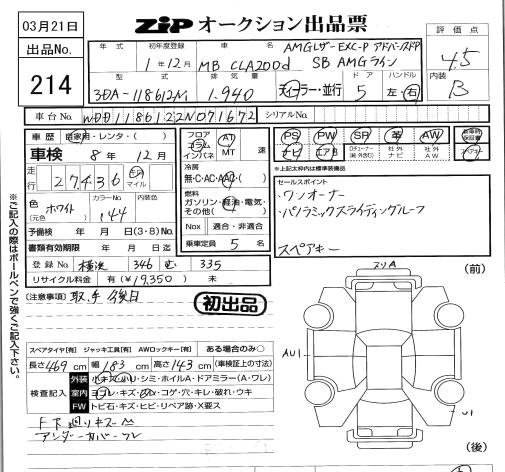 03月21日
ZiP オークション出品票
評価点
4.5
出品No.
214
年式 初年度登録 車名 AMGレザーEXC-P アドバンスドP
1年12月 MB CLA200d SB AMGライン
型式 排気量 ドア ハンドル 内装
3DA-118612M 1.940 ディーラー・並行 5 左・右 B
車台No. W1K1186122N071672 シリアルNo.
車歴 自家用・レンタ・( )
車検 8年 12月
走行 27,436 km マイル
色(元色) ホワイト カラーNo. 144 内装色
予備検 年 月 日(3・8)No.
書類有効期限 年 月 日迄
登録No. 横浜 346 む 335
リサイクル料金 有(¥19,350) 未
フロア コラム インパネ AT MT 速
冷房 無・C・AC・AAC・( )
燃料 ガソリン・軽油・電気・その他( )
Nox 適合・非適合
乗車定員 5 名
PS PW SR 革 AW 新車時保証書
ナビ エアB 社外ナビ 社外AW スペアキー
※上記太枠内は標準装備品
セールスポイント
・ワンオーナー
・パノラミックスライディングルーフ
スペアキー
※ご記入の際はボールペンで強くご記入下さい。
(注意事項) 取、手 後日
初出品
スペアタイヤ[有] ジャッキ工具[有] AWロックキー[有] ある場合のみ○
長さ 469 cm 幅 183 cm 高さ 143 cm (車検証上の寸法)
検査記入
外装 小キズ・ハリ・シミ・ホイルA・ドアミラー(A・ワレ)
室内 ヨゴレ・キズ・スレ・コゲ・穴・キレ・破れ・ウキ
FW トビ石・キズ・ヒビ・リペア跡・X要ス
F下廻リキズ
アンダーカバーワレ
スリA
(前)
AU1
U1
(後)